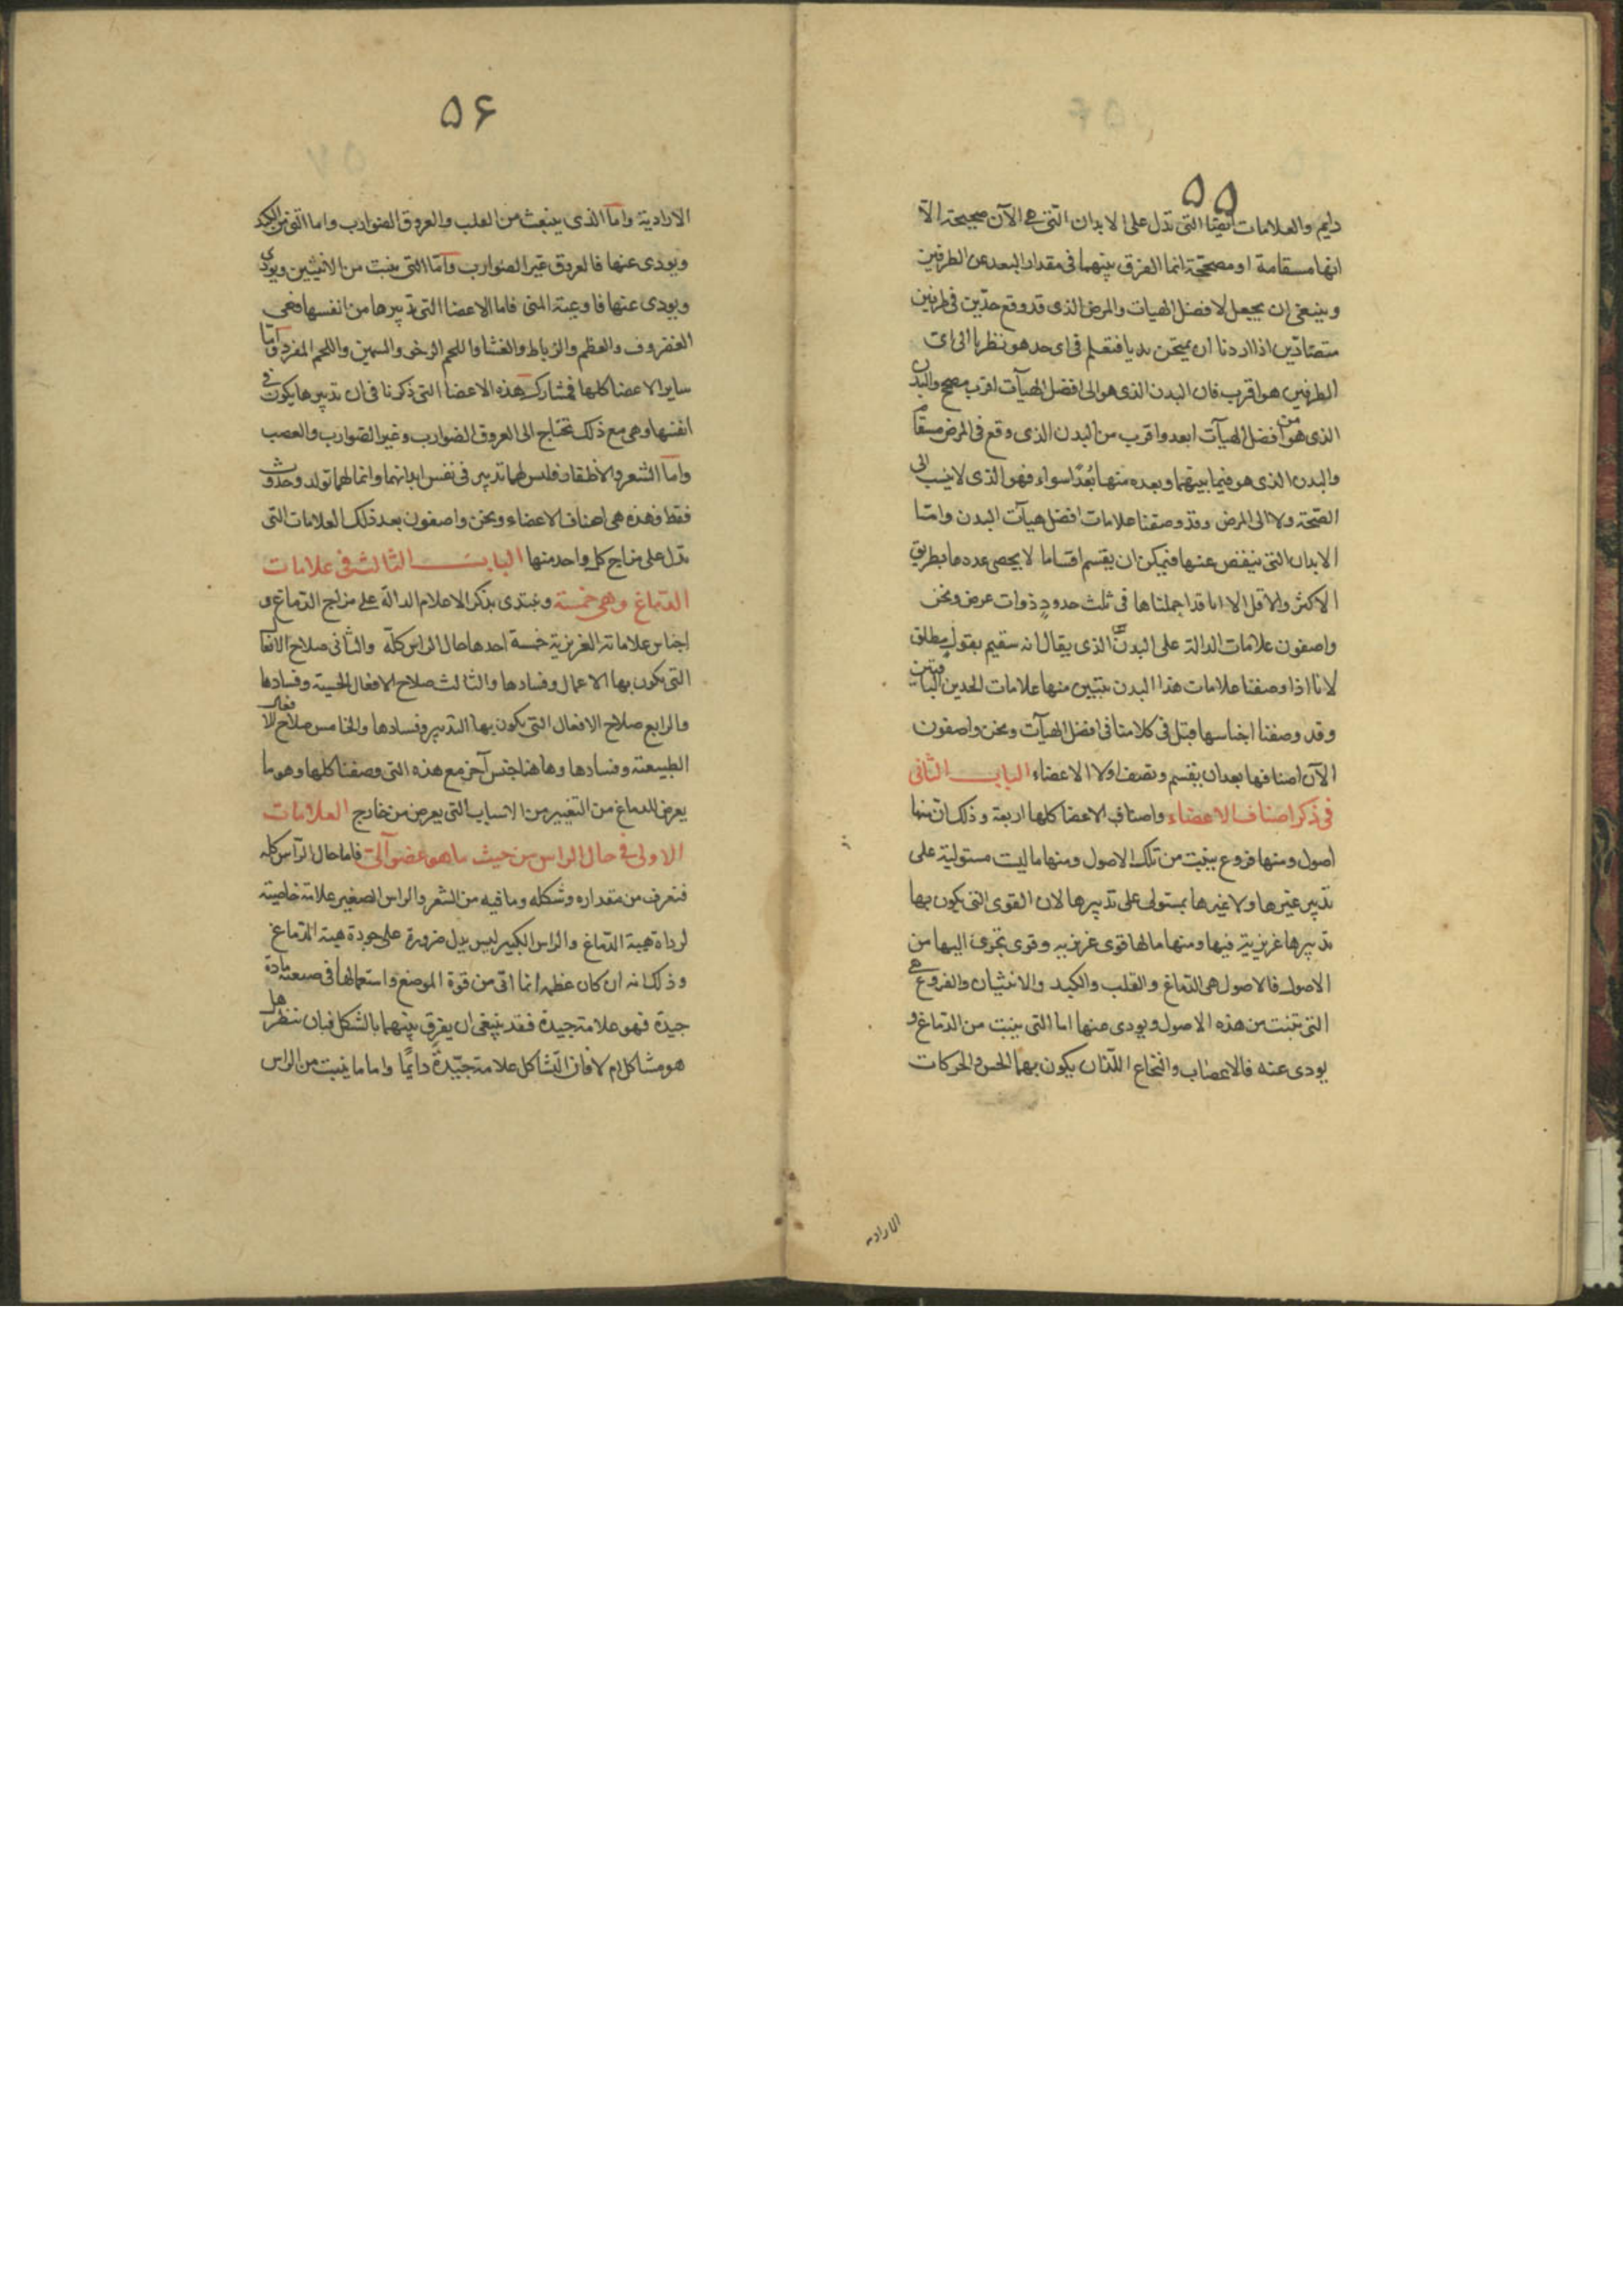 ۵۵
دايم والعلامات ايضا التى تدل على الابدان التى هى الآن صحيحة الا
انها مسقامة او مصححة انما الفرق بينهما فى مقدار البعد عن الطرفين
وينبغى ان يجعل لافضل الهيات والمرض الذى قد وقع حدّين فى طرفين
متضادّين اذا اردنا ان يمتحن بديا فنعلم فى اى حد هو نظرنا الى اى
الطرفين هو اقرب فان البدن الذى هو الى افضل الهيآت اقرب مصحح والبدن
الذى هو من افضل الهيآت ابعد واقرب من البدن الذى وقع فى المرض مسقام
والبدن الذى هو فيما بينهما وبعده منهما بُعدًا سواء فهو الذى لا ينسب الى
الصّحة ولا الى المرض وقد وصفنا علامات افضل هيآت البدن وامّا
الابدان التى ينقص عنها فيمكن ان يقسم اقساما لا يحصى عددها بطريق
الاكثر والاقل الا انا قد اجملناها فى ثلث حدودٍ ذوات عرض ونحن
واصفون علامات الدالة على البدن الذى يقال انه سقيم بقول مطلق
لانا اذا وصفنا علامات هذا البدن يتبيّن منها علامات الحدين الباقيين
وقد وصفنا اجناسها قبل فى كلامنا فى افضل الهيآت ونحن واصفون
الآن اصنافها بعد ان يقسم ونصف اولا الاعضاء البـاب الثانى
فى ذكر اصناف الاعضاء واصناف الاعضا كلها اربعة وذلك انّ منها
اصول ومنها فروع ينبت من تلك الاصول ومنها ما ليست مستولية على
تدبير غيرها ولا غيرها بمستولى على تدبيرها لان القوى التى يكون بها
تدبيرها غريزية فيها ومنها ما لها قوى غريزيه وقوى تجرى اليها من
الاصول فالاصول هى الدّماغ والقلب والكبد والانثيان والفروع هى
التى تنبت من هذه الاصول ويودى عنها اما التى ينبت من الدّماغ و
يودى عنه فالاعصاب والنخاع اللّذان يكون بهما الحس والحركات
الاراديه
۵۶
الارادية وامّا الذى ينبعث من القلب والعروق الضوارب واما التى من الكبد
ويودى عنها فالعروق غير الضوارب وامّا التى ينبت من الانثيين ويودى
ويودى عنها فاوعية المنى فاما الاعضا التى تدبيرها من انفسها فهى
الغضروف والعظم والرّباط والغشا واللحم الرخو والسمين واللحم المفرد وامّا
ساير الاعضا كلها فمشاركة هذه الاعضا التى ذكرنا فى ان تدبيرها يكون فى
انفسها وهى مع ذلك تحتاج الى العروق الضوارب وغير الضوارب والعصب
وامّا الشعر والاظفار فليس لهما تدبير فى نفس ابدانهما وانما لهما تولد وحدوث
فقط فهذه هى اصناف الاعضاء ونحن واصفون بعد ذلك العلامات التى
تدل على مزاج كل واحد منها البـاب الثالث فى علامات
الدّماغ وهى خمسة ونبتدى بذكر الاعلام الدالة على مزاج الدّماغ و
اجناس علاماته الغريزية خمسة احدها حال الراس كلّه والثانى صلاح الافعا
التى يكون بها الاعمال وفسادها والثالث صلاح الافعال الحسية وفسادها
والرابع صلاح الافعال التى يكون بها التدبير وفسادها والخامس صلاح الافعال
الطبيعة وفسادها وهاهنا جنس آخر مع هذه التى وصفنا كلها وهو ما
يعرض للدماغ من التغيير من الاسباب التى يعرض من خارج العلامات
الاولى فى حال الراس من حيث ما هو عضو آلى فاما حال الرّاس كله
فتعرف من مقداره وشكله وما فيه من الشعر والراس الصغير علامة خاصية
لرداة هيئة الدّماغ والراس الكبير ليس يدل ضرورة على جودة هيئة الدّماغ
وذلك انه ان كان عظمه انما اتى من قوة الموضع واستعمالها فى صنعته مادة
جيدة فهو علامة جيدة فقد ينبغى ان يفرق بينهما بالشكل فبان تنظر هل
هو مشاكل ام لا فان التّشاكل علامة جيّدة دايمًا واما ما ينبت من الراس